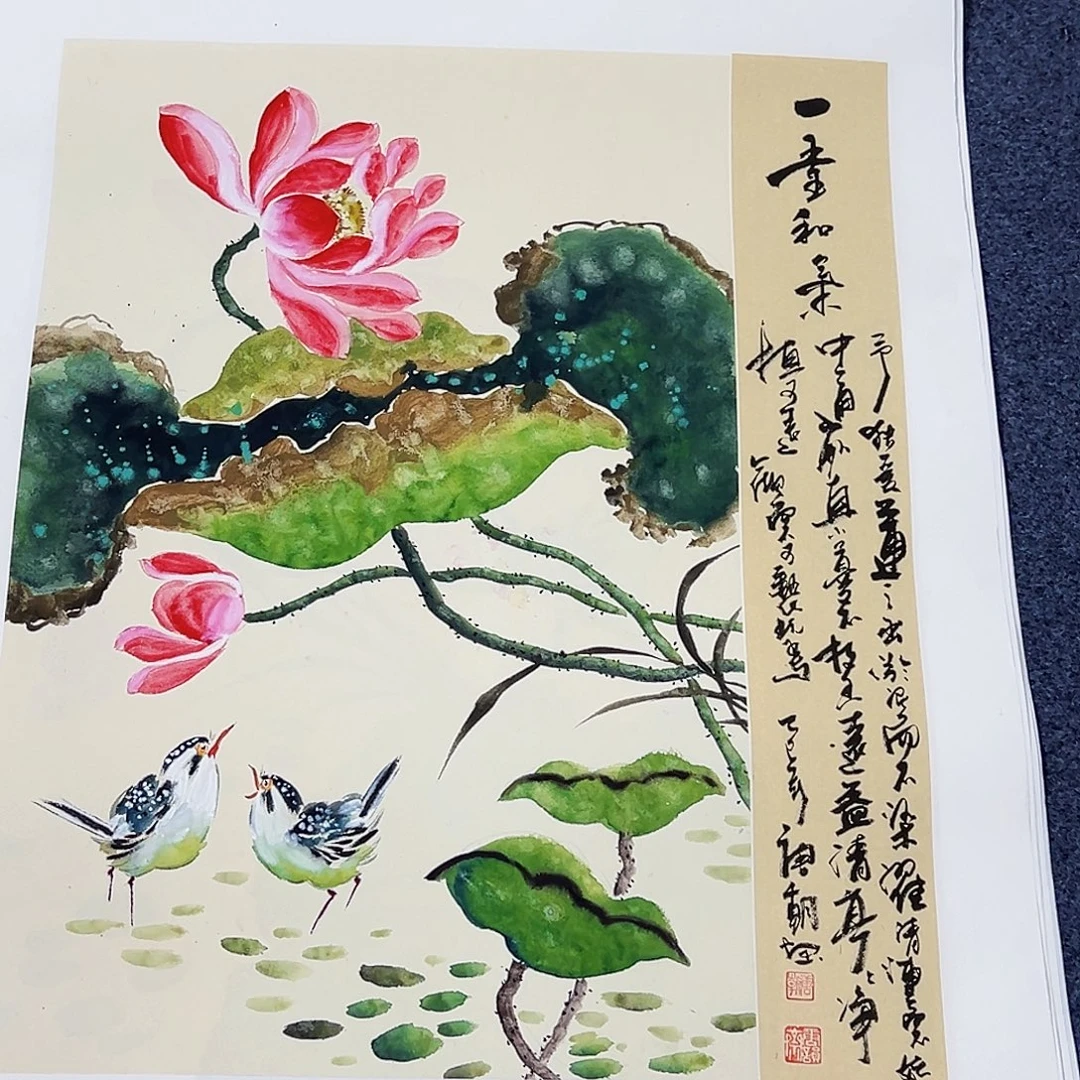 一堂和氣
予獨愛蓮之出淤泥而不染濯清漣而不妖
中通外直不蔓不枝香遠益清亭亭淨
植可遠觀而不可褻玩焉 乙巳年 唐朝